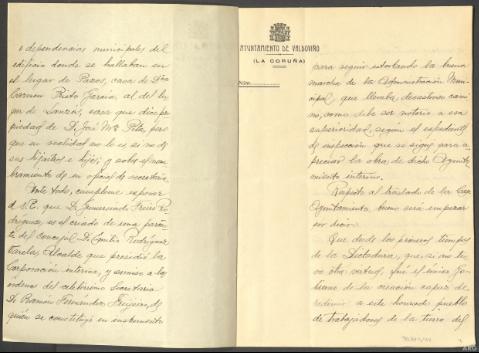 o dependencias municipales del
edificio donde se hallaban en
el lugar de Pazos, casa de Dña
Carmen Prieto García, al del lu-
gar de Lanzós, casa que dice pro-
piedad de D. José Mª Pita, pero
que en realidad no lo es, si no de
sus hijastros e hijos; y sobre el nom-
bramiento de un oficial de secretaría.
Ante todo, cúmpleme exponer
a S.E. que D. Gumersindo Freire Ro-
dríguez, es el criado de una parien-
ta del concejal D. Emilio Rodríguez
Alcalde que presidió la
Corporación interina, y sumiso a las
órdenes del celebérrimo Secretario
D. Ramón Fernández
quien se constituyó en instrumento
AYUNTAMIENTO DE VALDOVIÑO
(LA CORUÑA)
para seguir estorbando la buena
marcha de la Administración Muni-
cipal que llevaba desastroso cami-
no, como debe ser notorio a esa
superioridad según el expediente
de inspección que se sigue para a-
preciar la obra de dicho Ayunta-
miento interino.
Respecto al traslado de la Casa
Ayuntamiento, bueno será empezar
por decir:
Que desde los primeros tiempos
de la Dictadura, que, si no tu-
vo otra virtud, fué el único Go-
bierno de la creación capaz de
redimir a este honrado pueblo
de trabajadores de la tierra del
ARG